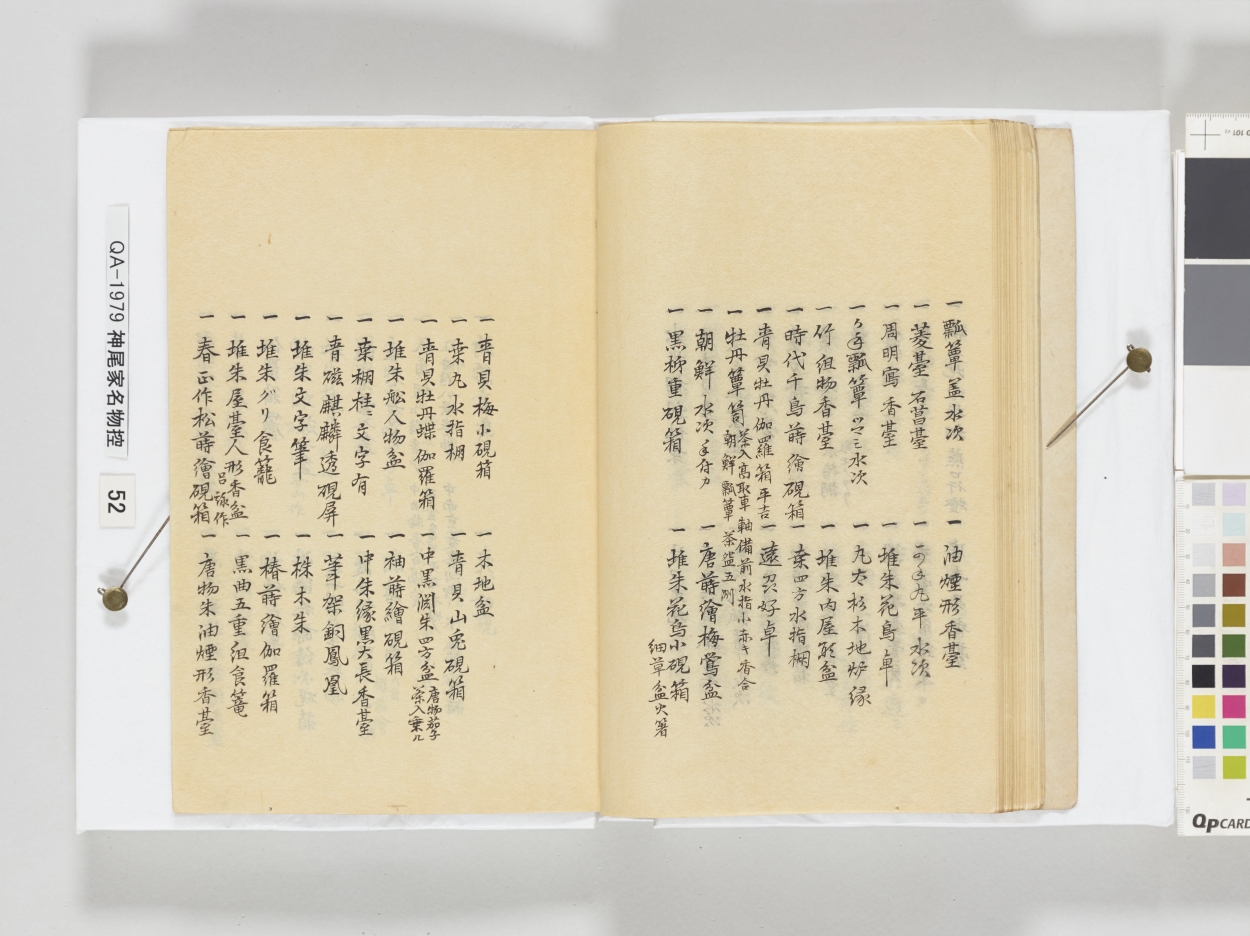 一 瓢簞蓋水次
一 菱䑓 石菖䑓
一 周明寫香䑓
一 瓢簞 水次
一 竹組物香䑓
一 時代千鳥蒔繪硯箱
一 青貝牡丹伽羅箱 平吉
一 牡丹簞笥 茶入高取車軸 備前水指 小赤キ香合
朝鮮瓢簞 茶盌五
一 朝鮮水次 手付カ
一 黒柳重硯箱
一 油煙形香䑓
一 平水次
一 堆朱花鳥卓
一 丸太杉木地炉縁
一 堆朱内屋形盆
一 桑四方水指棚
一 遠州好卓
一 唐蒔繪梅鶯盆
一 堆朱花鳥小硯箱
細草盆火箸
一 青貝梅小硯箱
一 桑丸水指棚
一 青貝牡丹蝶伽羅箱
一 堆朱舩人物盆
一 桑棚桂ニ文字有
一 青磁麒麟透硯屏
一 堆朱文字筆
一 堆朱グリ食籠
一 堆朱屋䑓人形香盆
呂 作
一 春正作松蒔繪硯箱
一 木地盆
一 青貝山兎硯箱
一 中黒渕朱四方盆 唐物茄子
茶入乗ル
一 袖蒔繪硯箱
一 中朱縁黒大長香䑓
一 筆架銅鳳凰
一 株木朱
一 椿蒔繪伽羅箱
一 黒曲五重組食篭
一 唐物朱油煙形香䑓
QA-1979 神尾家名物控
52
QPCARD